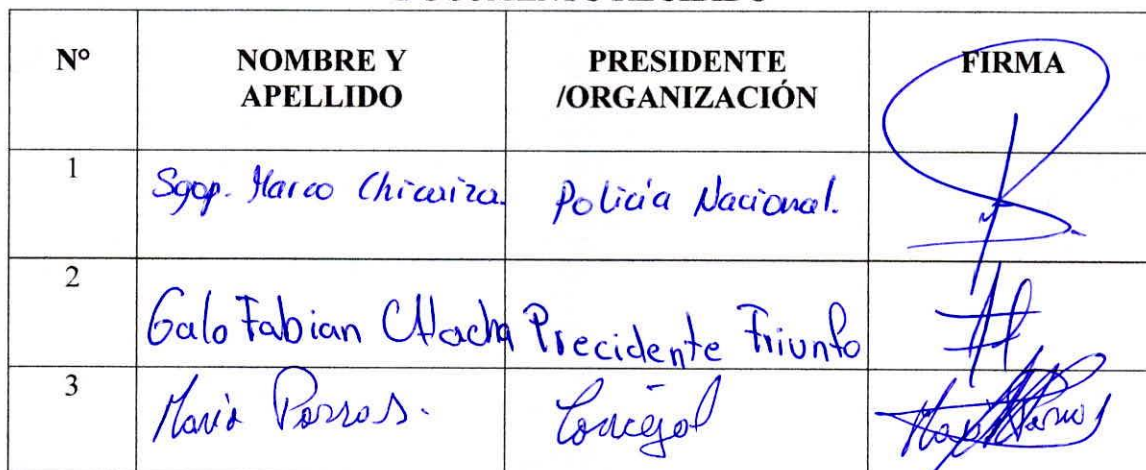 N°
NOMBRE Y
APELLIDO
PRESIDENTE
/ORGANIZACIÓN
FIRMA
1
Sgop. Marco Chicaiza.
Policía Nacional.
2
Galo Fabian
Precidente Triunfo
3
María
Concejal